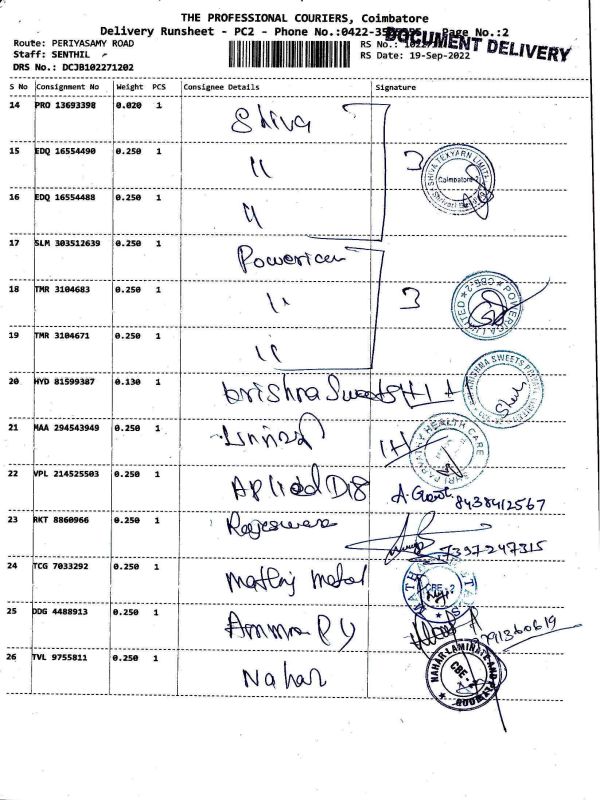 THE PROFESSIONAL COURIERS, Coimbatore
Delivery Runsheet - PC2 - Phone No.:0422- Page No.:2
DOCUMENT DELIVERY
Route: PERIYASAMY ROAD
RS No.:
Staff: SENTHIL
RS Date: 19-Sep-2022
DRS No.: DCJB102271202
S No Consignment No Weight PCS Consignee Details Signature
14 PRO 13693398 0.020 1 Shiva
15 EDQ 16554490 0.250 1 "
3
SHIVA TEXYARN LIMITED
Coimbatore
16 EDQ 16554488 0.250 1 "
17 SLM 303512639 0.250 1 Powerica
18 TMR 3104683 0.250 1 "
3
POWERICA LIMITED CBE-2
19 TMR 3104671 0.250 1 "
20 HYD 81599387 0.130 1 krishna Sweets
KRISHNA SWEETS
21 MAA 294543949 0.250 1
SHRI PARVATHY HEALTH CARE
22 VPL 214525503 0.250 1 Aplied Dig
8438412567
23 RKT 8860966 0.250 1 Rajeswara
7397247315
24 TCG 7033292 0.250 1 Mathij Metal
CBE - 2
25 DDG 4488913 0.250 1 Amma PY
26 TVL 9755811 0.250 1 Nahar
NAHAR LAMINATE AND PLYWOOD
CBE